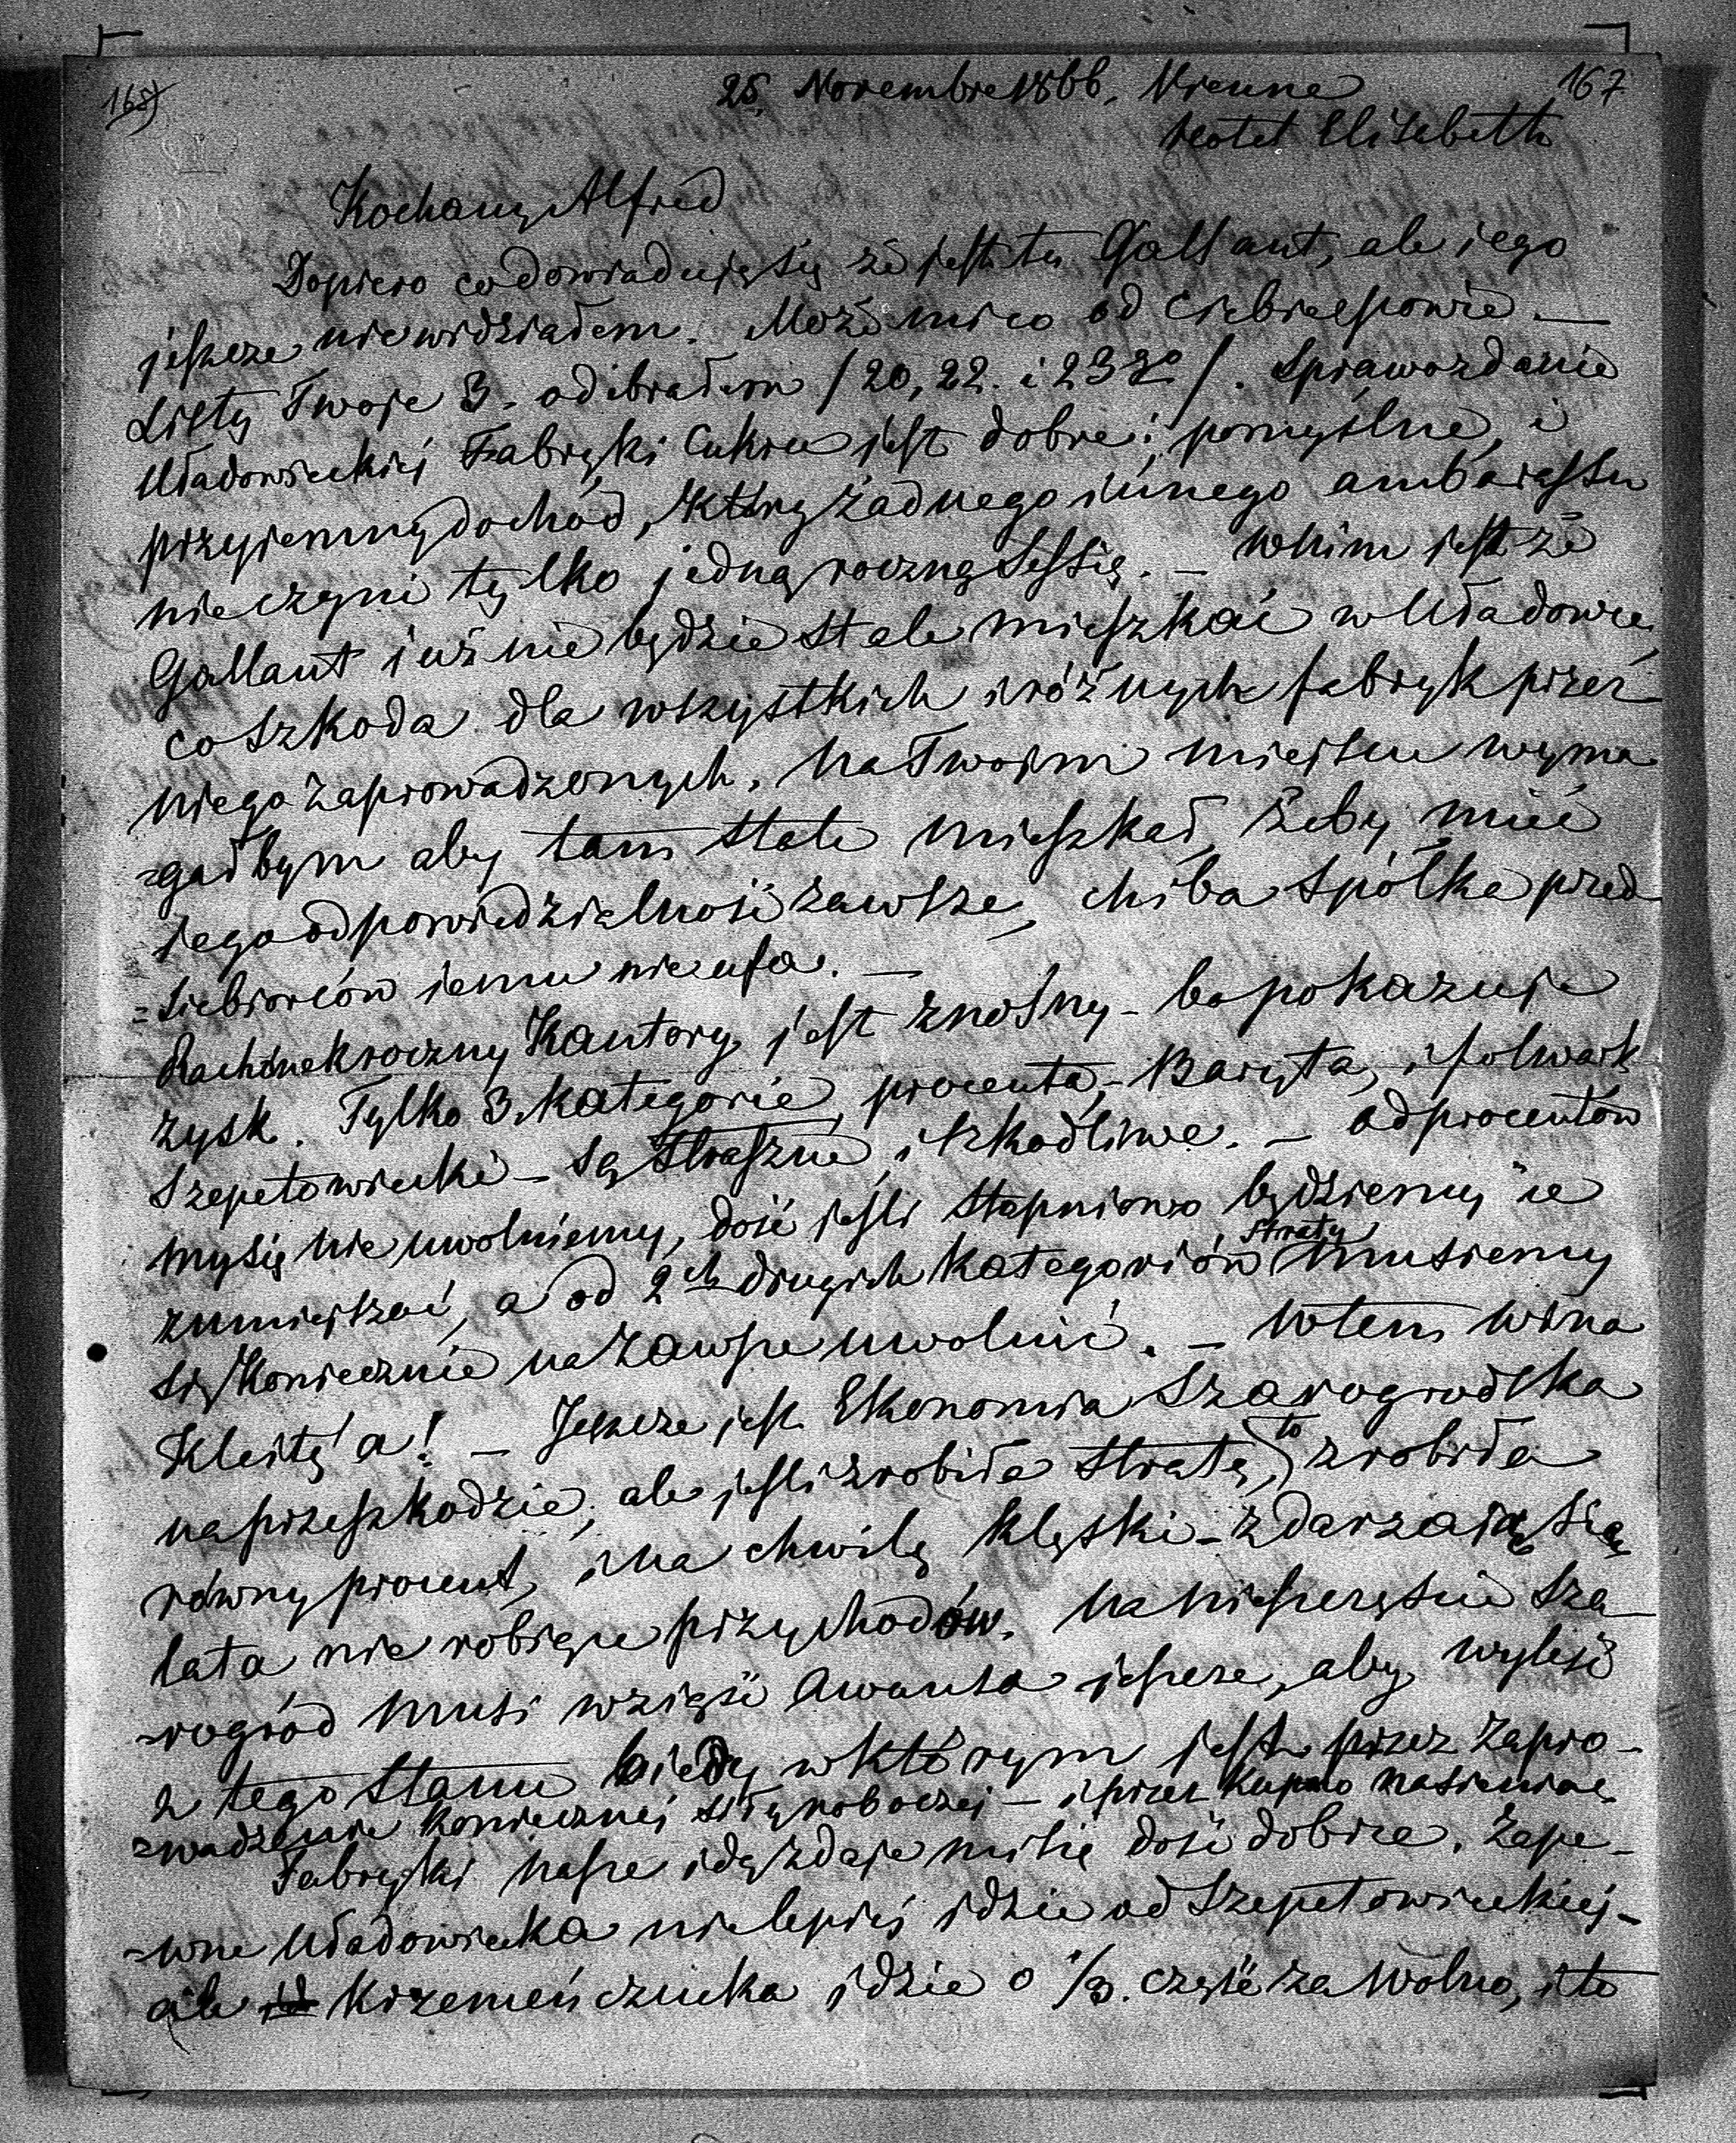 168) 25. Novembre 1866. Vienne 167
Hotel Elisabeth
Kochany Alfred
Dopiero co dowiaduję się że jest tu Gallant, ale jego
jeszcze nie widziałem. Może mi co od Ciebie powie. —
Listy Twoje 3. odebrałem / 20, 22. i 23go /. Sprawozdanie
Uładowieckiej Fabryki Cukru jest dobre i pomyślne, i
przyjemny dochód, który żadnego innego ambarassu
nie czyni tylko jedną roczną Sessię. — W nim jest że
Gallant już nie będzie stale mieszkać w Uładowce,
co szkoda dla wszystkich i różnych fabryk przez
niego zaprowadzonych. Na Twoim miejscu wyma
=gałbym aby tam stale mieszkał, żeby mieć
jego odpowiedzialność zawsze, chiba Spółka przed
=siebiorców jemu nie ufa. —
Rachunek roczny Kantory jest znośny — bo pokazuje
zysk. Tylko 3. kategorie, procenta, — Baryta, i folwark
Szepetowiecki — są straszne, i szkodliwe. — od procentów
my się nie uwolniemy, dość jeśli stopniowo będziemy ie
zumiejszać, a od 2ch drugich kategoriów straty musiemy
się koniecznie na zawsze uwolnić. — W tem wina
Kleitę'a! — Jeszcze jest Ekonomia Szarogrodska
na przeszkodzie, ale jeśli zrobiła stratę, to zrobiła
równy procent, i na chwilę klęski — zdarzaią się
lata nie robiące przychodów. Na nieszczęście Sza
=rogród musi wziąść Awansa jeszcze, aby wyleść
z tego stanu biedy w którym jest przez zapro-
=wadzenie koniecznej siły roboczej — i przez kupno nasienia.
Fabryki nasze idą zdaje mi się dość dobrze. Zape-
=wne Uładowiecka nielepiej idzie od Szepetowieckiej —
ale Krzemieńczucka idzie o 1/3. część za wolno, i to